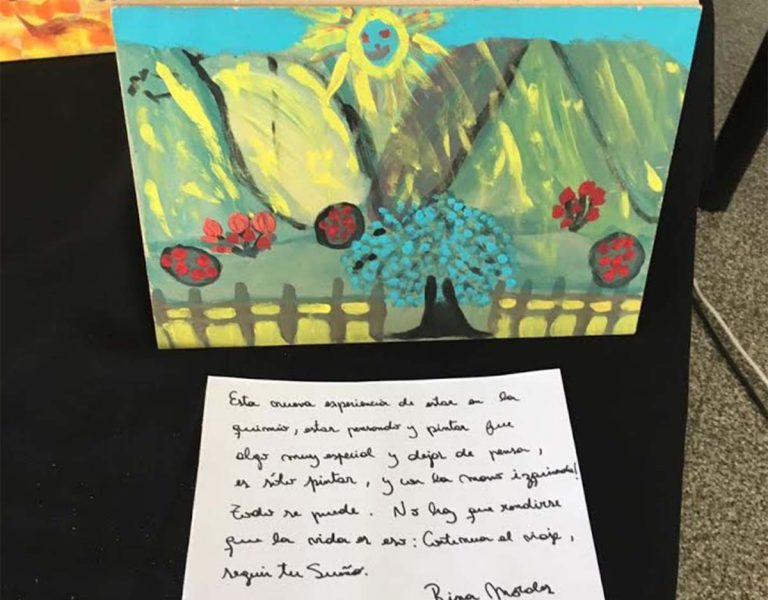 Esta nueva experiencia de estar en la
quimio, estar pensando y pintar fue
algo muy especial y dejar de pensar,
es sólo pintar, y con la mano izquierda!
Todo se puede. No hay que rendirse
que la vida es eso: Continuar el viaje,
seguir tu Sueño.
Rina Morales